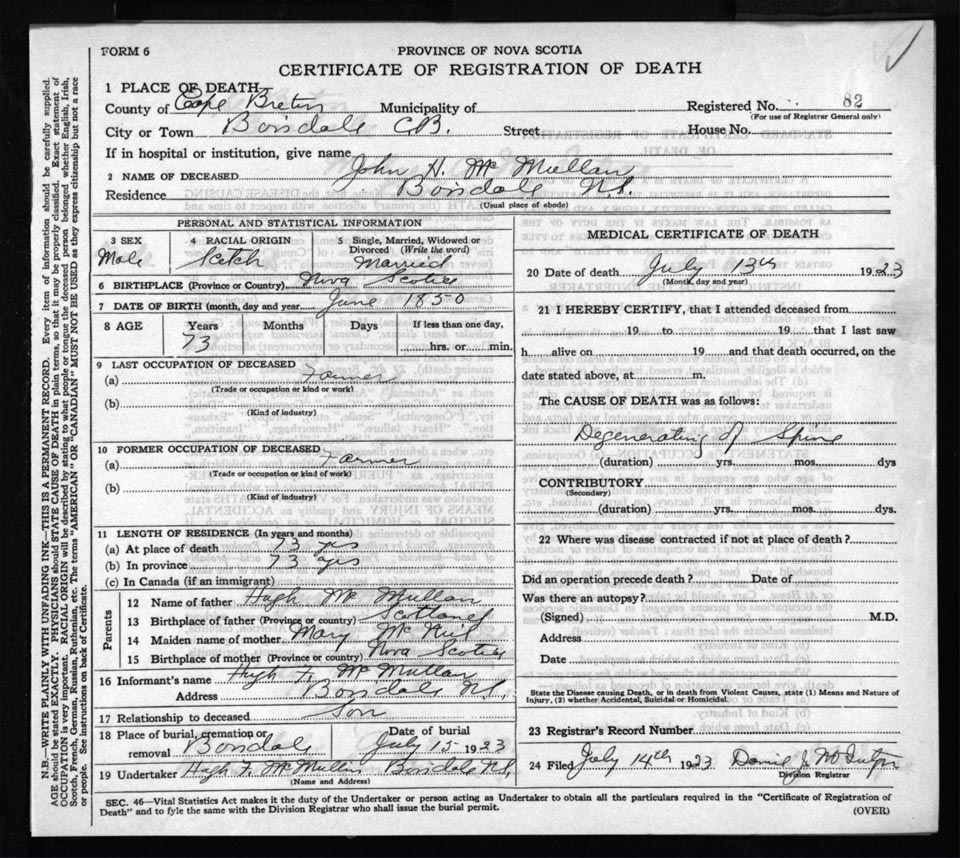 FORM 6
PROVINCE OF NOVA SCOTIA
CERTIFICATE OF REGISTRATION OF DEATH
1 PLACE OF DEATH
County of Cape Breton Municipality of Registered No. 82
(For use of Registrar General only)
City or Town Boisdale C.B. Street House No.
If in hospital or institution, give name
2 NAME OF DECEASED John H. Mc Mullan
Residence Boisdale N.S.
(Usual place of abode)
PERSONAL AND STATISTICAL INFORMATION
3 SEX 4 RACIAL ORIGIN 5 Single, Married, Widowed or Divorced (Write the word)
Male Scotch Married
6 BIRTHPLACE (Province or Country) Nova Scotia
7 DATE OF BIRTH (month, day and year) June 1850
8 AGE Years Months Days If less than one day,
73 hrs. or min.
9 LAST OCCUPATION OF DECEASED
(a) Farmer
(Trade or occupation or kind of work)
(b)
(Kind of industry)
10 FORMER OCCUPATION OF DECEASED
(a) Farmer
(Trade or occupation or kind of work)
(b)
(Kind of industry)
11 LENGTH OF RESIDENCE (In years and months)
(a) At place of death 73 yrs
(b) In province 73 yrs
(c) In Canada (if an immigrant)
Parents
12 Name of father Hugh Mc Mullan
13 Birthplace of father (Province or country) Scotland
14 Maiden name of mother Mary Mc Neil
15 Birthplace of mother (Province or country) Nova Scotia
16 Informant's name Hugh F. Mc Mullan
Address Boisdale N.S.
17 Relationship to deceased Son
18 Place of burial, cremation or removal Boisdale Date of burial July 15 1923
19 Undertaker Hugh F. McMullin Boisdale N.S.
(Name and Address)
MEDICAL CERTIFICATE OF DEATH
20 Date of death July 13th 1923
(Month, day and year)
21 I HEREBY CERTIFY, that I attended deceased from
19 to 19 that I last saw
h alive on 19 and that death occurred, on the
date stated above, at m.
The CAUSE OF DEATH was as follows:
Degenerating of Spine
(duration) yrs. mos. dys
CONTRIBUTORY
(Secondary)
(duration) yrs. mos. dys.
22 Where was disease contracted if not at place of death?
Did an operation precede death? Date of
Was there an autopsy?
(Signed) M.D.
Address
Date
State the Disease causing Death, or in death from Violent Causes, state (1) Means and Nature of
Injury, (2) whether Accidental, Suicidal or Homicidal.
23 Registrar's Record Number
24 Filed July 14th 1923 J.
Division Registrar
SEC. 46—Vital Statistics Act makes it the duty of the Undertaker or person acting as Undertaker to obtain all the particulars required in the "Certificate of Registration of
Death" and to fyle the same with the Division Registrar who shall issue the burial permit. (OVER)
N.B.—WRITE PLAINLY WITH UNFADING INK—THIS IS A PERMANENT RECORD. Every item of information should be carefully supplied.
AGE should be stated EXACTLY. PHYSICIANS should STATE CAUSE OF DEATH in plain terms, so that it may be properly classified. Exact statement of
OCCUPATION is very important. RACIAL ORIGIN will be described by stating to what people or tongue the deceased person belonged whether English, Irish,
Scotch, French, German, Russian, Ruthenian, etc. The terms "AMERICAN" OR "CANADIAN" MUST NOT BE USED as they express citizenship but not a race
or people. See instructions on back of Certificate.